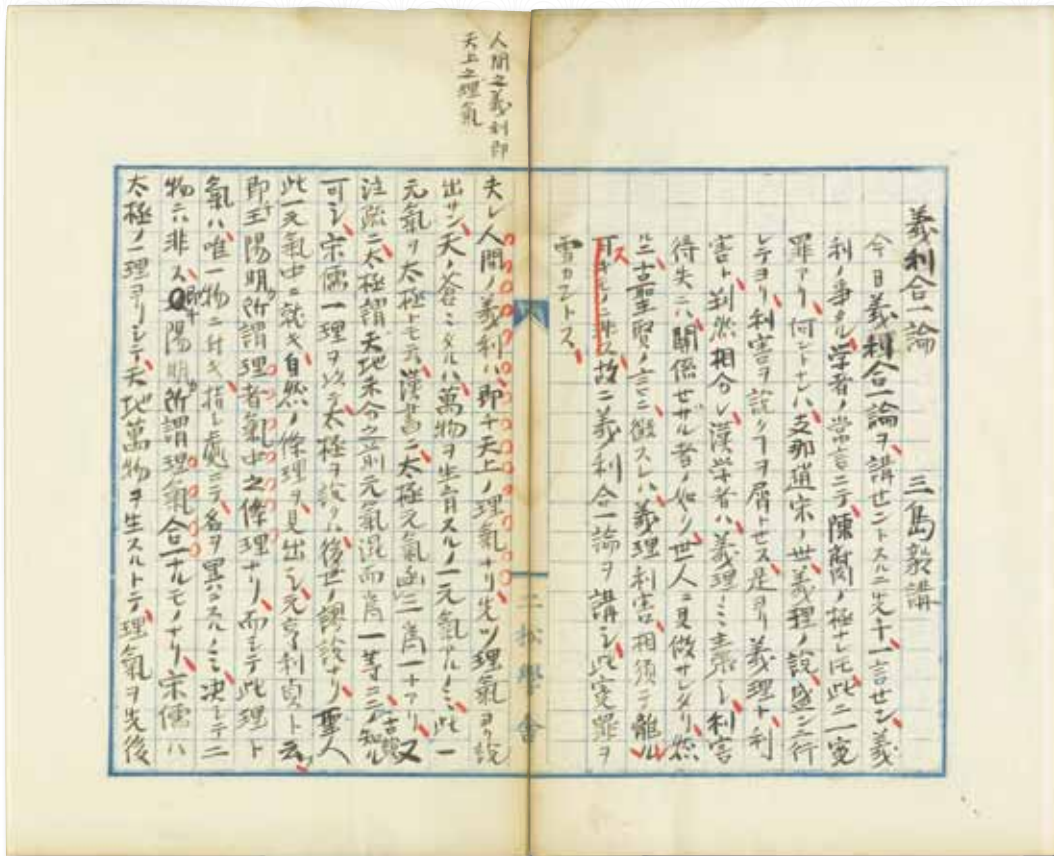 義利合一論　三島毅講
今日義利合一論ヲ、講セントスルニ先チ、一言セン、義
利ノ事タル、学者ノ常言ニテ、陳腐ノ極ナレ𪜈、此ニ一寃
罪アリ、何ントナレハ、支那趙宋ノ世、義理ノ説、盛ンニ行
レテヨリ、利害ヲ説クヿヲ屑トセス、是ヨリ義理ト、利
害ト、判然相分レ、漢学者ハ、義理ノミ主張シ、利害
得失ニハ、関係セサル者ノ如ク、世人ニ見做サレタリ、然
ルニ古聖賢ノ言ニ徴スレハ、義理利害、相須テ離ル
可キモノニ非ス、故ニ義利合一論ヲ講シ、此寃罪ヲ
ス
雪カントス、
人間之義利即
天上之理氣
夫レ人間ノ義利ハ、即チ天上ノ理氣ナリ、先ツ理氣ヨリ説
出サン、天ノ蒼々タルハ、萬物ヲ生育スルノ一元氣アルノミ、此一
元氣ヲ太極トモ云、漢書ニ、太極元氣、函三為一トアリ、又
注疏ニ、太極謂天地未分之前、元氣混而為一等ニテ知ル
古説
可シ、宋儒一理ヲ以テ、太極ヲ説クハ、後世ノ謬説ナリ、聖人
此一元氣中ニ就キ、自然ノ條理ヲ見出シ、元亨利貞ト云、
即チ王陽明ノ所謂理者氣中之條理ナリ、而シテ此理ト
氣ハ、唯一物ニ付キ、指ス處ニテ、名ヲ異ニスルノミ、决シテ二
物ニハ非ス、即チ陽明ノ所謂理氣合一ナルモノナリ、宋儒ハ
太極ノ一理ヨリシテ、天地萬物ヲ生スルトテ、理氣ヲ先後
二松學會